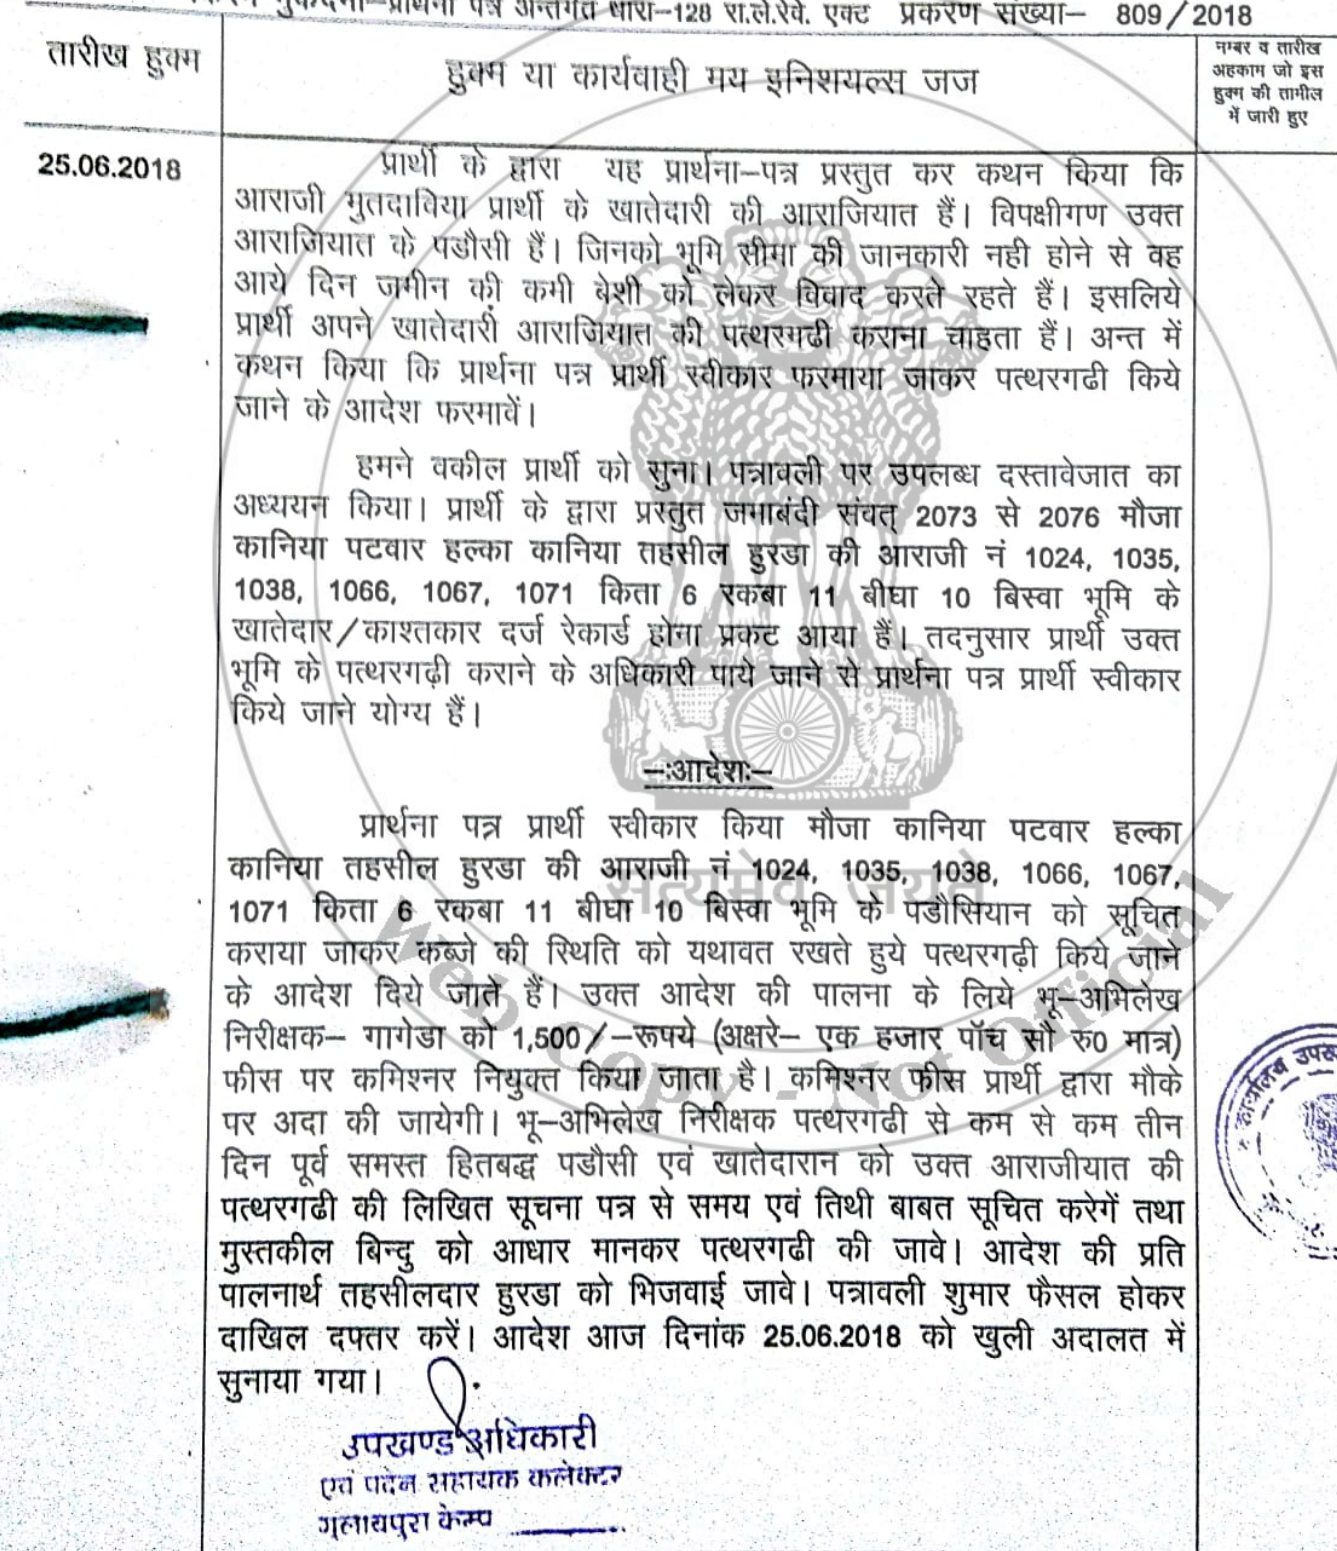 मुकदमा–प्रार्थना पत्र अन्तर्गत धारा–128 रा.ले.रेवे. एक्ट प्रकरण संख्या– 809/2018
तारीख हुक्म
हुक्म या कार्यवाही मय इनिशयल्स जज
नम्बर व तारीख
अहकाम जो इस
हुक्म की तामील
में जारी हुए
25.06.2018
प्रार्थी के द्वारा यह प्रार्थना–पत्र प्रस्तुत कर कथन किया कि
आराजी मुतदाविया प्रार्थी के खातेदारी की आराजियात हैं। विपक्षीगण उक्त
आराजियात के पडौसी हैं। जिनको भूमि सीमा की जानकारी नही होने से वह
आये दिन जमीन की कमी बेशी को लेकर विवाद करते रहते हैं। इसलिये
प्रार्थी अपने खातेदारी आराजियात की पत्थरगढी कराना चाहता हैं। अन्त में
कथन किया कि प्रार्थना पत्र प्रार्थी स्वीकार फरमाया जाकर पत्थरगढी किये
जाने के आदेश फरमावें।
हमने वकील प्रार्थी को सुना। पत्रावली पर उपलब्ध दस्तावेजात का
अध्ययन किया। प्रार्थी के द्वारा प्रस्तुत जमाबंदी संवत् 2073 से 2076 मौजा
कानिया पटवार हल्का कानिया तहसील हुरडा की आराजी नं 1024, 1035,
1038, 1066, 1067, 1071 किता 6 रकबा 11 बीघा 10 बिस्वा भूमि के
खातेदार/काश्तकार दर्ज रेकार्ड होना प्रकट आया हैं। तदनुसार प्रार्थी उक्त
भूमि के पत्थरगढ़ी कराने के अधिकारी पाये जाने से प्रार्थना पत्र प्रार्थी स्वीकार
किये जाने योग्य हैं।
–:आदेश:–
प्रार्थना पत्र प्रार्थी स्वीकार किया मौजा कानिया पटवार हल्का
कानिया तहसील हुरडा की आराजी नं 1024, 1035, 1038, 1066, 1067,
1071 किता 6 रकबा 11 बीघा 10 बिस्वा भूमि के पडौसियान को सूचित
कराया जाकर कब्जे की स्थिति को यथावत रखते हुये पत्थरगढ़ी किये जाने
के आदेश दिये जाते हैं। उक्त आदेश की पालना के लिये भू–अभिलेख
निरीक्षक– गागेडा को 1,500/–रूपये (अक्षरे– एक हजार पॉच सौ रु0 मात्र)
फीस पर कमिश्नर नियुक्त किया जाता है। कमिश्नर फीस प्रार्थी द्वारा मौके
पर अदा की जायेगी। भू–अभिलेख निरीक्षक पत्थरगढी से कम से कम तीन
दिन पूर्व समस्त हितबद्ध पडौसी एवं खातेदारान को उक्त आराजीयात की
पत्थरगढी की लिखित सूचना पत्र से समय एवं तिथी बाबत सूचित करेगें तथा
मुस्तकील बिन्दु को आधार मानकर पत्थरगढी की जावे। आदेश की प्रति
पालनार्थ तहसीलदार हुरडा को भिजवाई जावे। पत्रावली शुमार फैसल होकर
दाखिल दफ्तर करें। आदेश आज दिनांक 25.06.2018 को खुली अदालत में
सुनाया गया।
सत्यमेव जयते
Web Copy - Not Official
कार्यालय उपख
उपखण्ड अधिकारी
एवं पदेन सहायक कलेक्टर
गुलाबपुरा केम्प